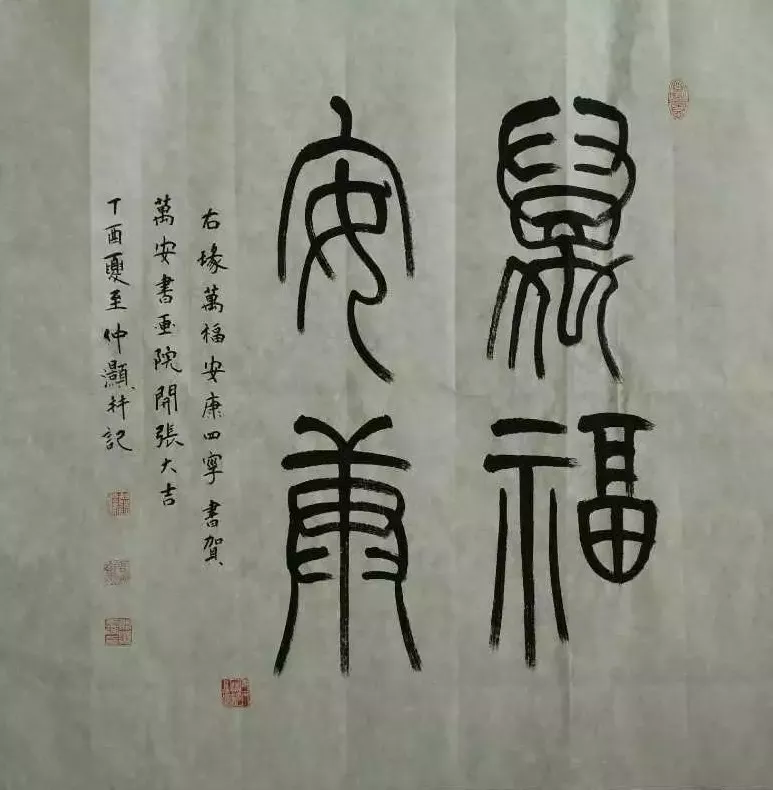 萬福
安康
右掾萬福安康四寧 書賀
萬安書画院開張大吉
丁酉夏至仲顯并記